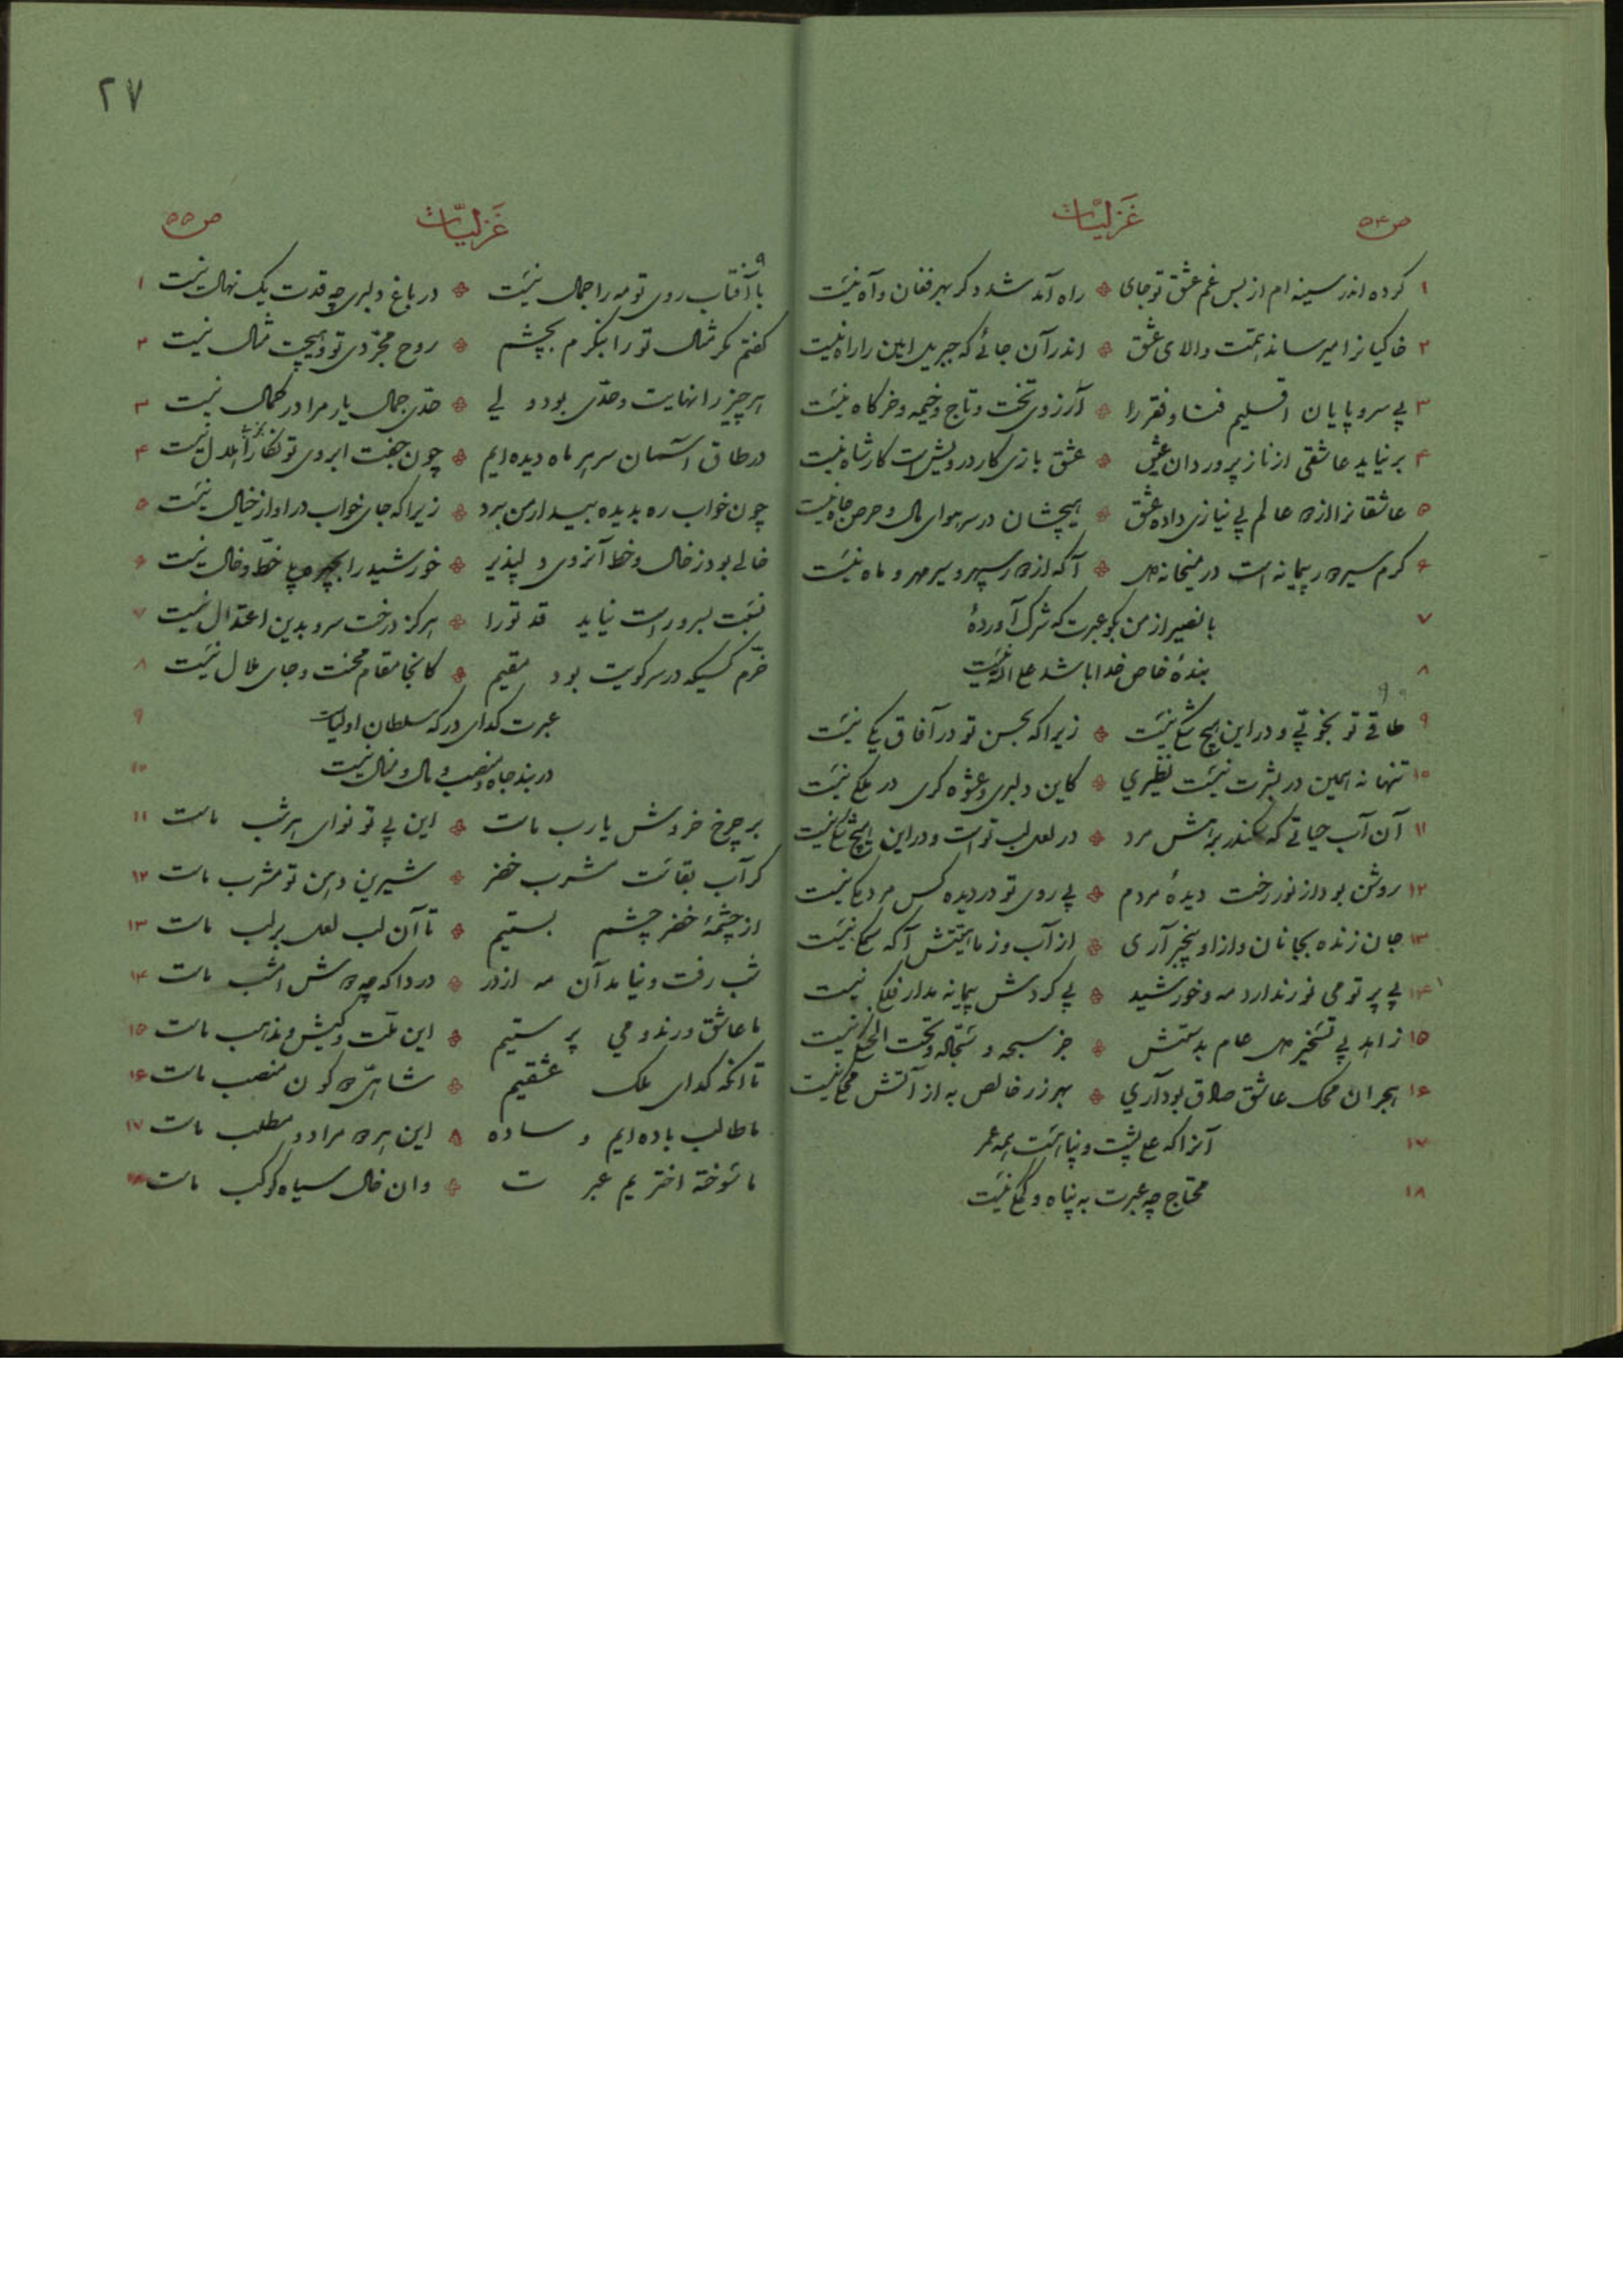 ۲۷
ص ۵۴
غَزلیّات
۱ کرده اندر سینه ام از بس غم عشق تو جای راه آمد شد دگر بهر فغان و آه نیست
۲ خاکیانرا میرساند همت والای عشق اندر آن جائے که جبریل امین را راه نیست
۳ بی سر و پایان اقلیم فنا و فقر را آرزوی تخت و تاج و خیمه و خرگاه نیست
۴ بر نیاید عاشقی از ناز پروردان عشق بازی کار درویش است کار شاه نیست
۵ عاشقانرا از دو عالم بی نیازی داده عشق هیچشان در سر هوای مال و حرص جاه نیست
۶ گرم سیر پیمانه است در میخانه آگه از سپهر و سیر مهر و ماه نیست
۷ با نصیر از من بگو عبرت که شرک آوردهٔ
۸ بندهٔ خاص خدا باشد علی الله نیست
۹ طاقی تو بخوبی و در این هیچ شکی نیست زیرا که بحسن تو در آفاق یکی نیست
۱۰ تنها نه همین در بشرت نیست نظیری کاین دلبری و عشوه گری در ملکی نیست
۱۱ آن آب حیاتی که سکندر براهش مرد در لعل لب تو است و در این هیچ شکی نیست
۱۲ روشن بود از نور رخت دیدهٔ مردم بی روی تو در دیده کس مردمکی نیست
۱۳ جان زنده بجانان و از او بیخبر آری از آب و ز ماهیتش آگه سمکی نیست
۱۴ بی پرتو می نور ندارد مه و خورشید بی گردش پیمانه مدار فلکی نیست
۱۵ زاهد بی تسخیر عام بدستش جز سبحه و سجّاده و تحت الحنکی نیست
۱۶ هجران محک عاشق صادق بود آری بهر زر خالص به از آتش محکی نیست
۱۷ آنرا که علی پشت و پناهست همه عمر
۱۸ محتاج چه عبرت به پناه و کمکی نیست
غَزلیّات
ص ۵۵
با آفتاب روی تو مه را جمال نیست در باغ دلبری چه قدت یک نهال نیست ۱
گفتم مگر مثال تو را بنگرم بچشم روح مجرّدی تو و هیچت مثال نیست ۲
هر چیز را نهایت و حدّی بود ولی حدّی جمال یار مرا در کمال نیست ۳
در طاق آسمان سر هر ماه دیده ایم چون جفت ابروی تو نگارا هلال نیست ۴
چون خواب ره بدیده بیدار من برد زیرا که جای خواب در او از خیال نیست ۵
خالی بود ز خال و خط آنروی دلپذیر خورشید را بچهره خطّ و خال نیست ۶
نسبت بسرو راست نیاید قد تو را هرگز درخت سرو بدین اعتدال نیست ۷
خرّم کسیکه در سر کویت بود مقیم کانجا مقام محنت و جای ملال نیست ۸
عبرت گدای درگه سلطان اولیاست ۹
در بند جاه و منصب و مال و منال نیست ۱۰
بر چرخ خروش یارب ماست این بی تو نوای هر شب ماست ۱۱
گر آب بقاست مشرب خضر شیرین دهن تو مشرب ماست ۱۲
از چشمهٔ خضر چشم بستیم تا آن لب لعل بر لب ماست ۱۳
شب رفت و نیامد آن مه از در دردا که چه امشب ماست ۱۴
ما عاشق و رند و می پرستیم این ملّت و کیش و مذهب ماست ۱۵
تا آنکه گدای ملک عشقیم شاهیّ کون منصب ماست ۱۶
ما طالب باده ایم و ساده این مراد و مطلب ماست ۱۷
ما سوخته اختریم عبرت وان خال سیاه کوکب ماست